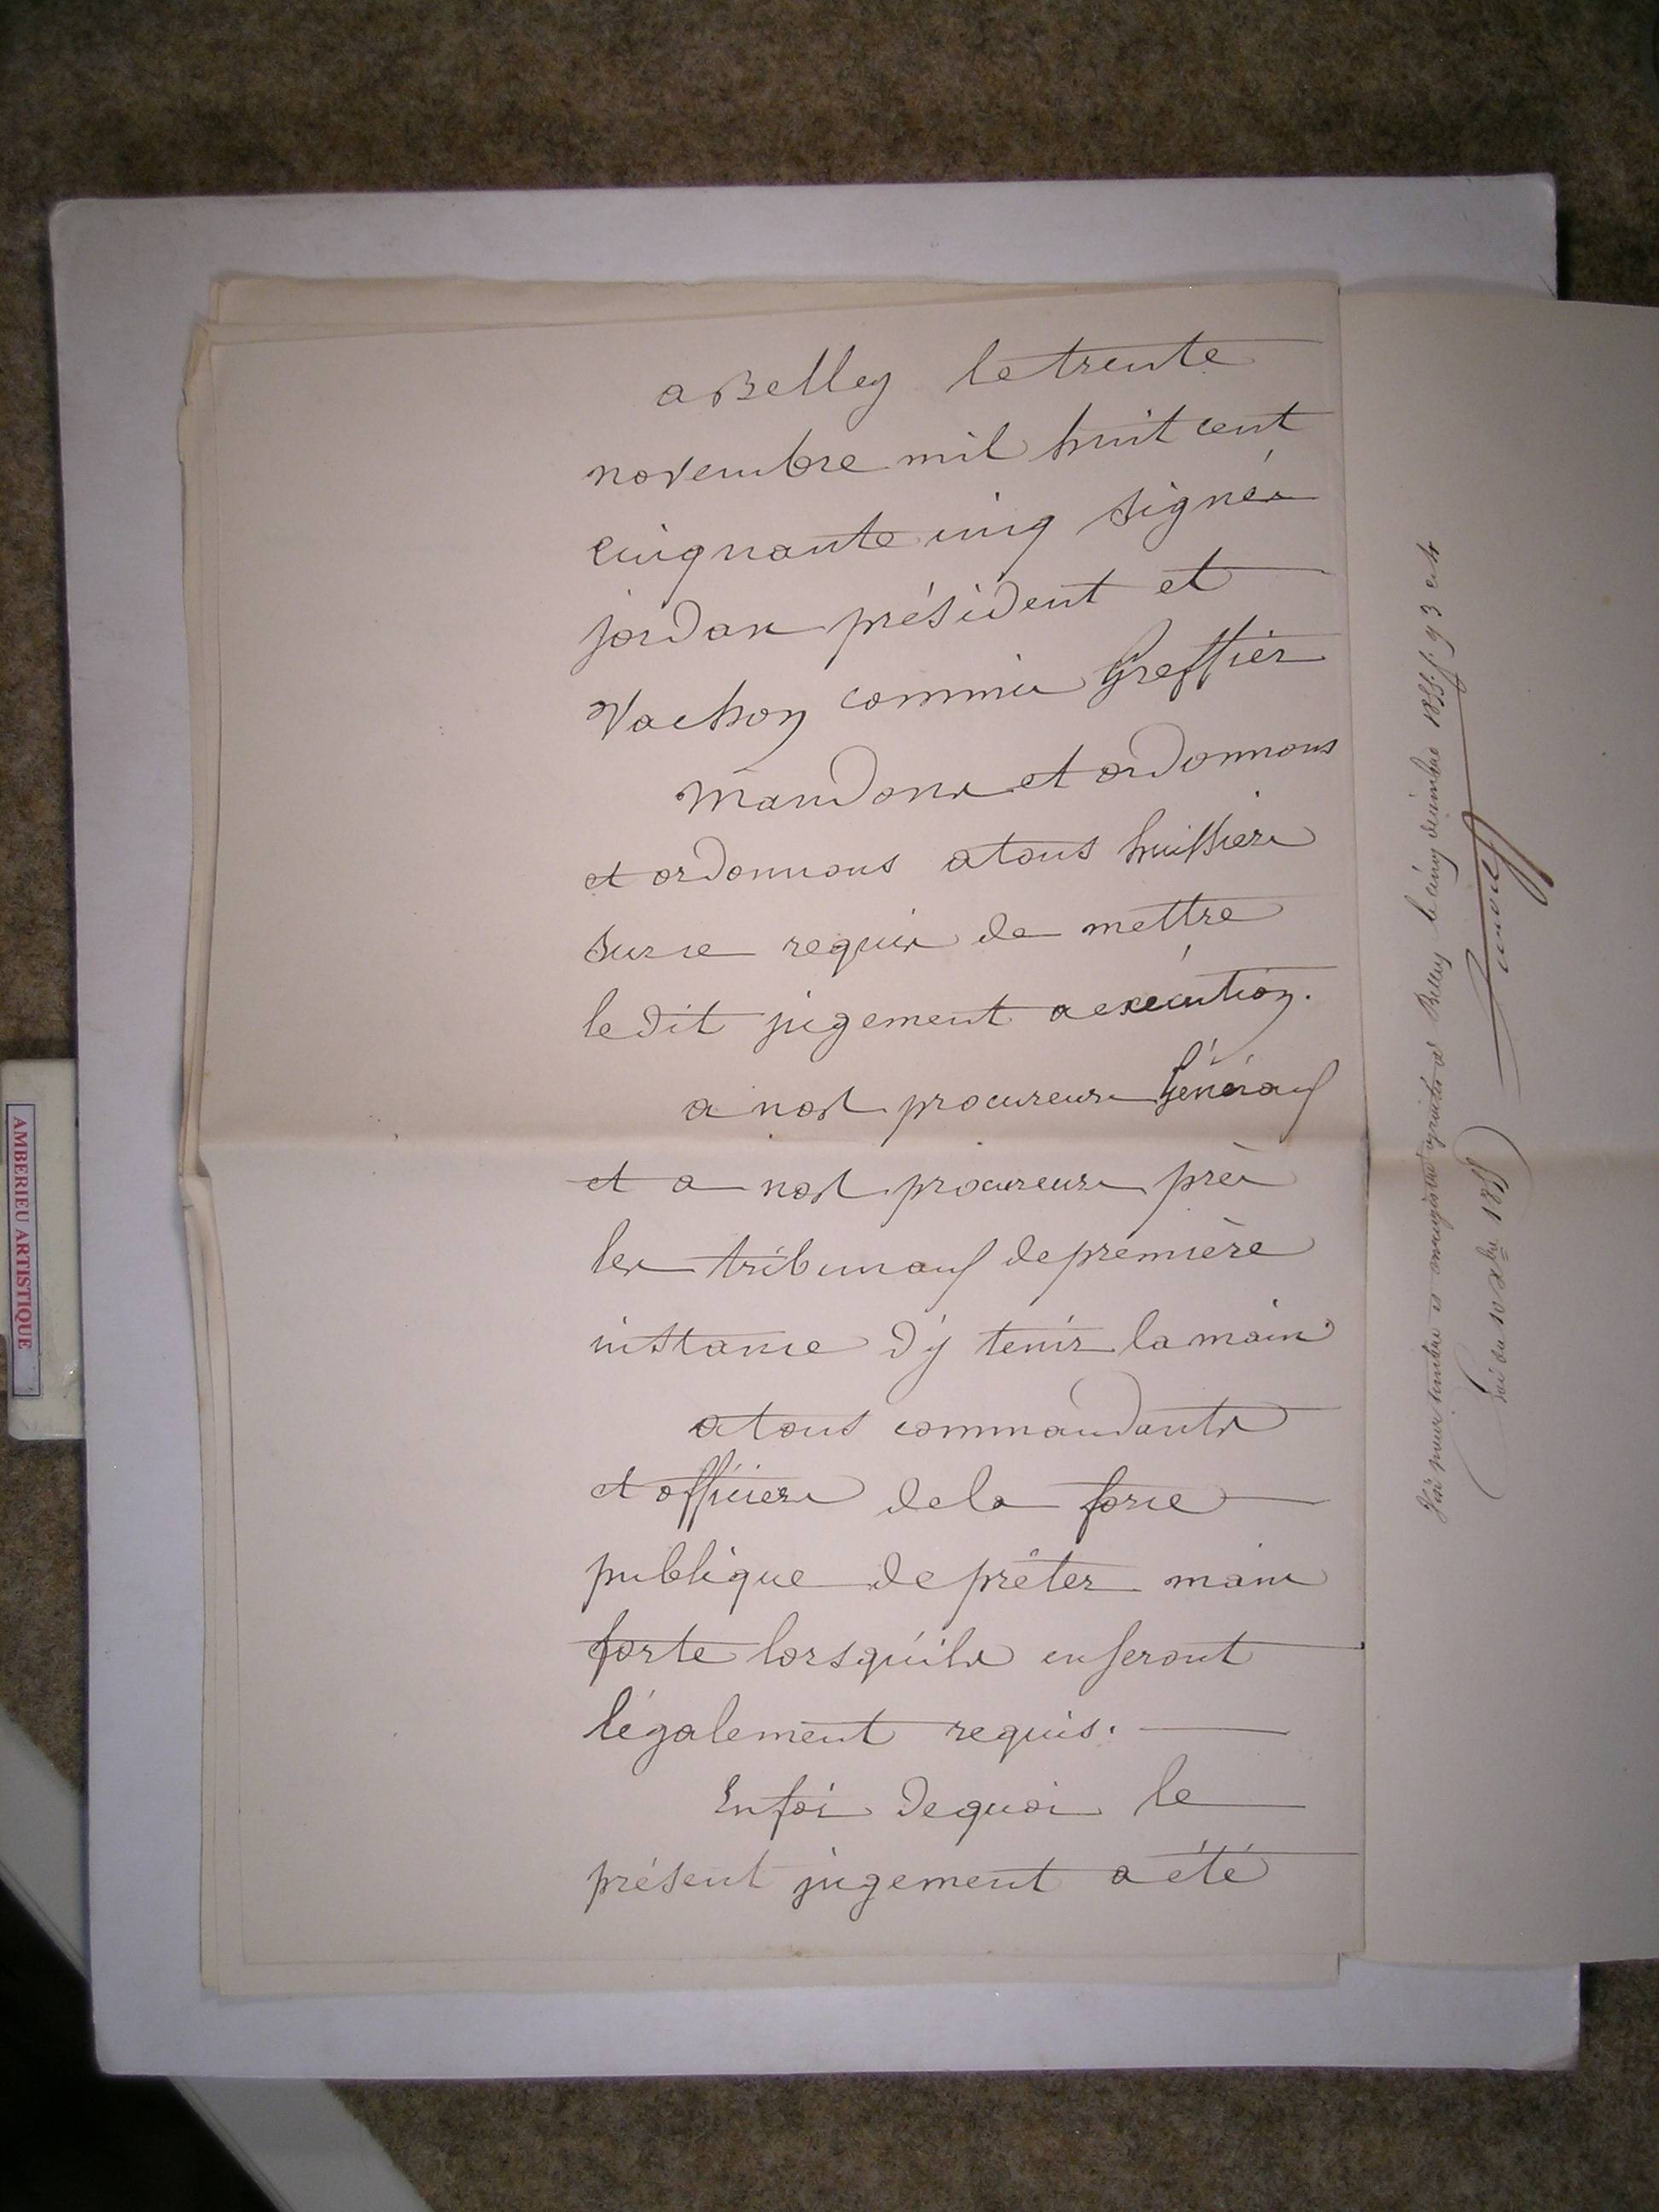 a Belley le trente
novembre mil huit cent
cinquante cinq signés
jordan président et
Vachon commis Greffier
Mandons et ordonnons
et ordonnons a tous huissiers
sur ce requis de mettre
le dit jugement a exécution.
a nos procureurs Généraux
et a nos procureurs près
les tribunaux de première
instance d'y tenir la main
a tous commandants
et officiers de la force
publique de prêter main
forte lorsqu'ils en seront
légalement requis.
En foi de quoi le
présent jugement a été
Visé pour timbre et enregistré à Belley le cinq décembre 1855 f. 93
du 10 Xbre 1855
AMBERIEU ARTISTIQUE